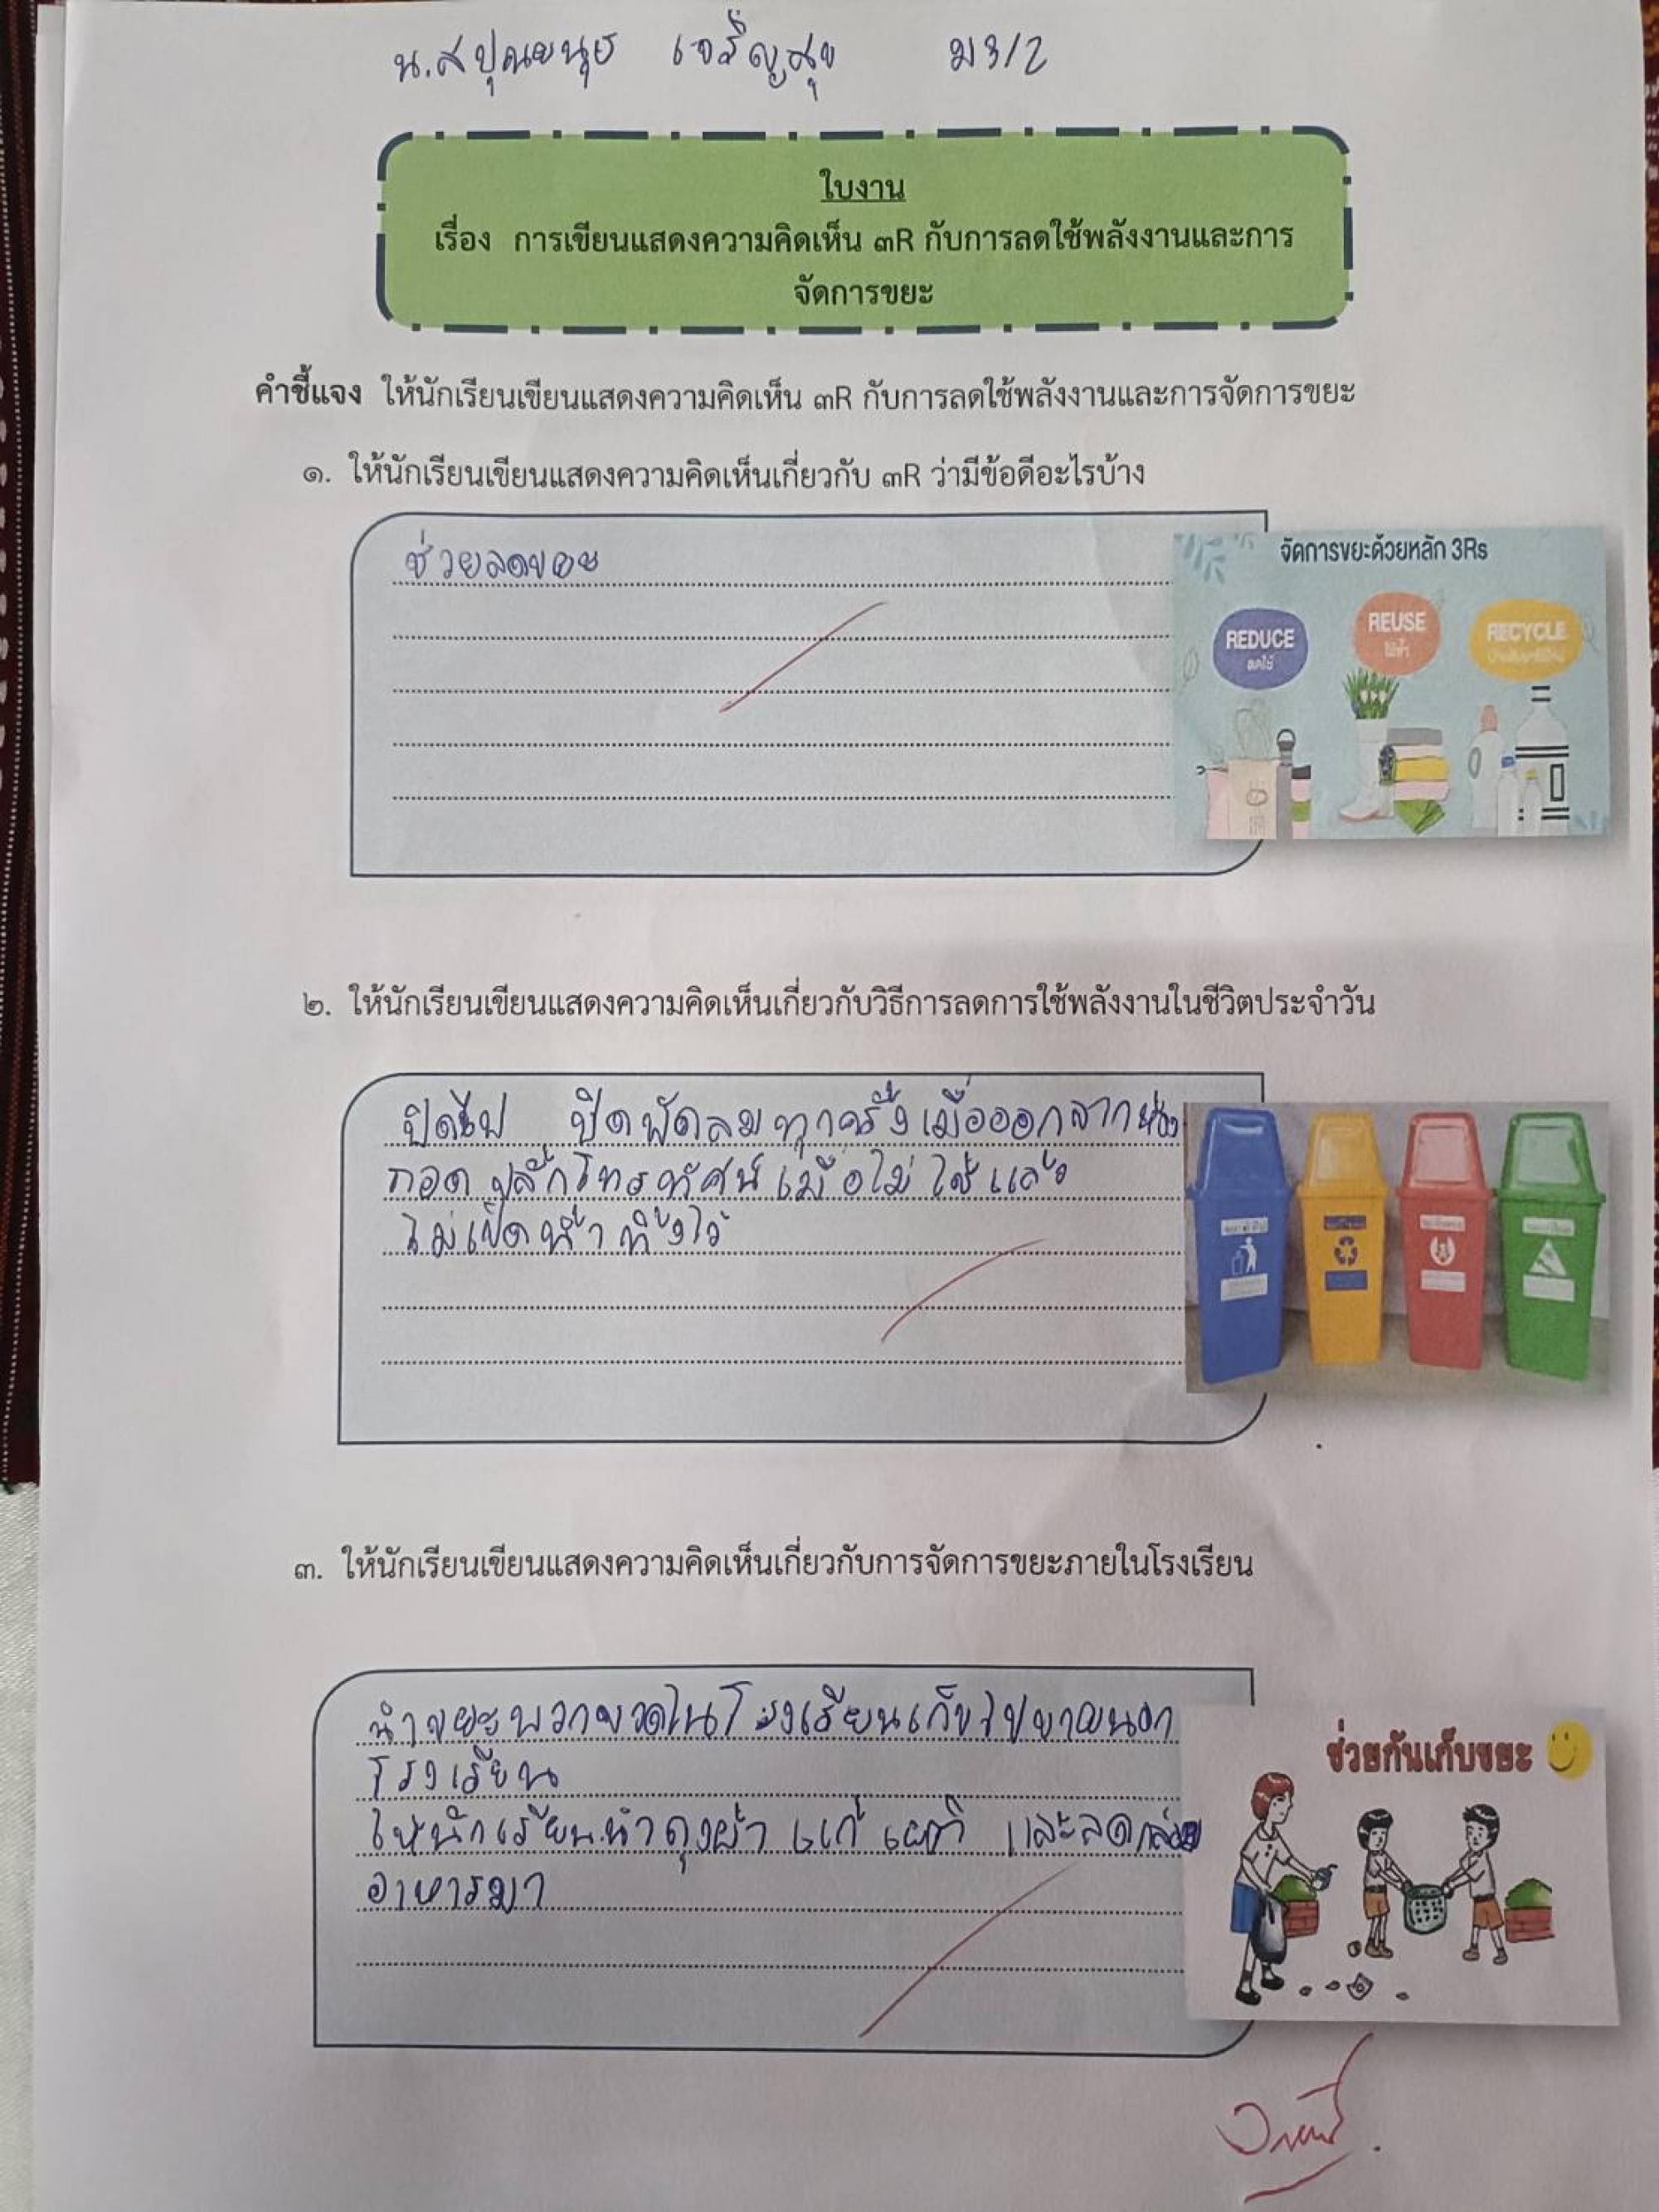 น.ส ปุณยนุช เจริญสุข ม3/2
ใบงาน
เรื่อง การเขียนแสดงความคิดเห็น ๓R กับการลดใช้พลังงานและการ
จัดการขยะ
คำชี้แจง ให้นักเรียนเขียนแสดงความคิดเห็น ๓R กับการลดใช้พลังงานและการจัดการขยะ
๑. ให้นักเรียนเขียนแสดงความคิดเห็นเกี่ยวกับ ๓R ว่ามีข้อดีอะไรบ้าง
ช่วยลดขยะ
จัดการขยะด้วยหลัก 3Rs
REDUCE
ลดใช้
REUSE
ใช้ซ้ำ
RECYCLE
๒. ให้นักเรียนเขียนแสดงความคิดเห็นเกี่ยวกับวิธีการลดการใช้พลังงานในชีวิตประจำวัน
ปิดไฟ ปิดพัดลมทุกครั้งเมื่อออกจากห้อง
ถอดปลั๊กโทรทัศน์เมื่อไม่ใช้แล้ว
ไม่เปิดน้ำทิ้งไว้
๓. ให้นักเรียนเขียนแสดงความคิดเห็นเกี่ยวกับการจัดการขยะภายในโรงเรียน
นำขยะพวกขวดในโรงเรียนเก็บไปขายนอก
โรงเรียน
ให้นักเรียนนำถุงผ้า แก้วเยติ และลดกล่อง
อาหารมา
ช่วยกันเก็บขยะ